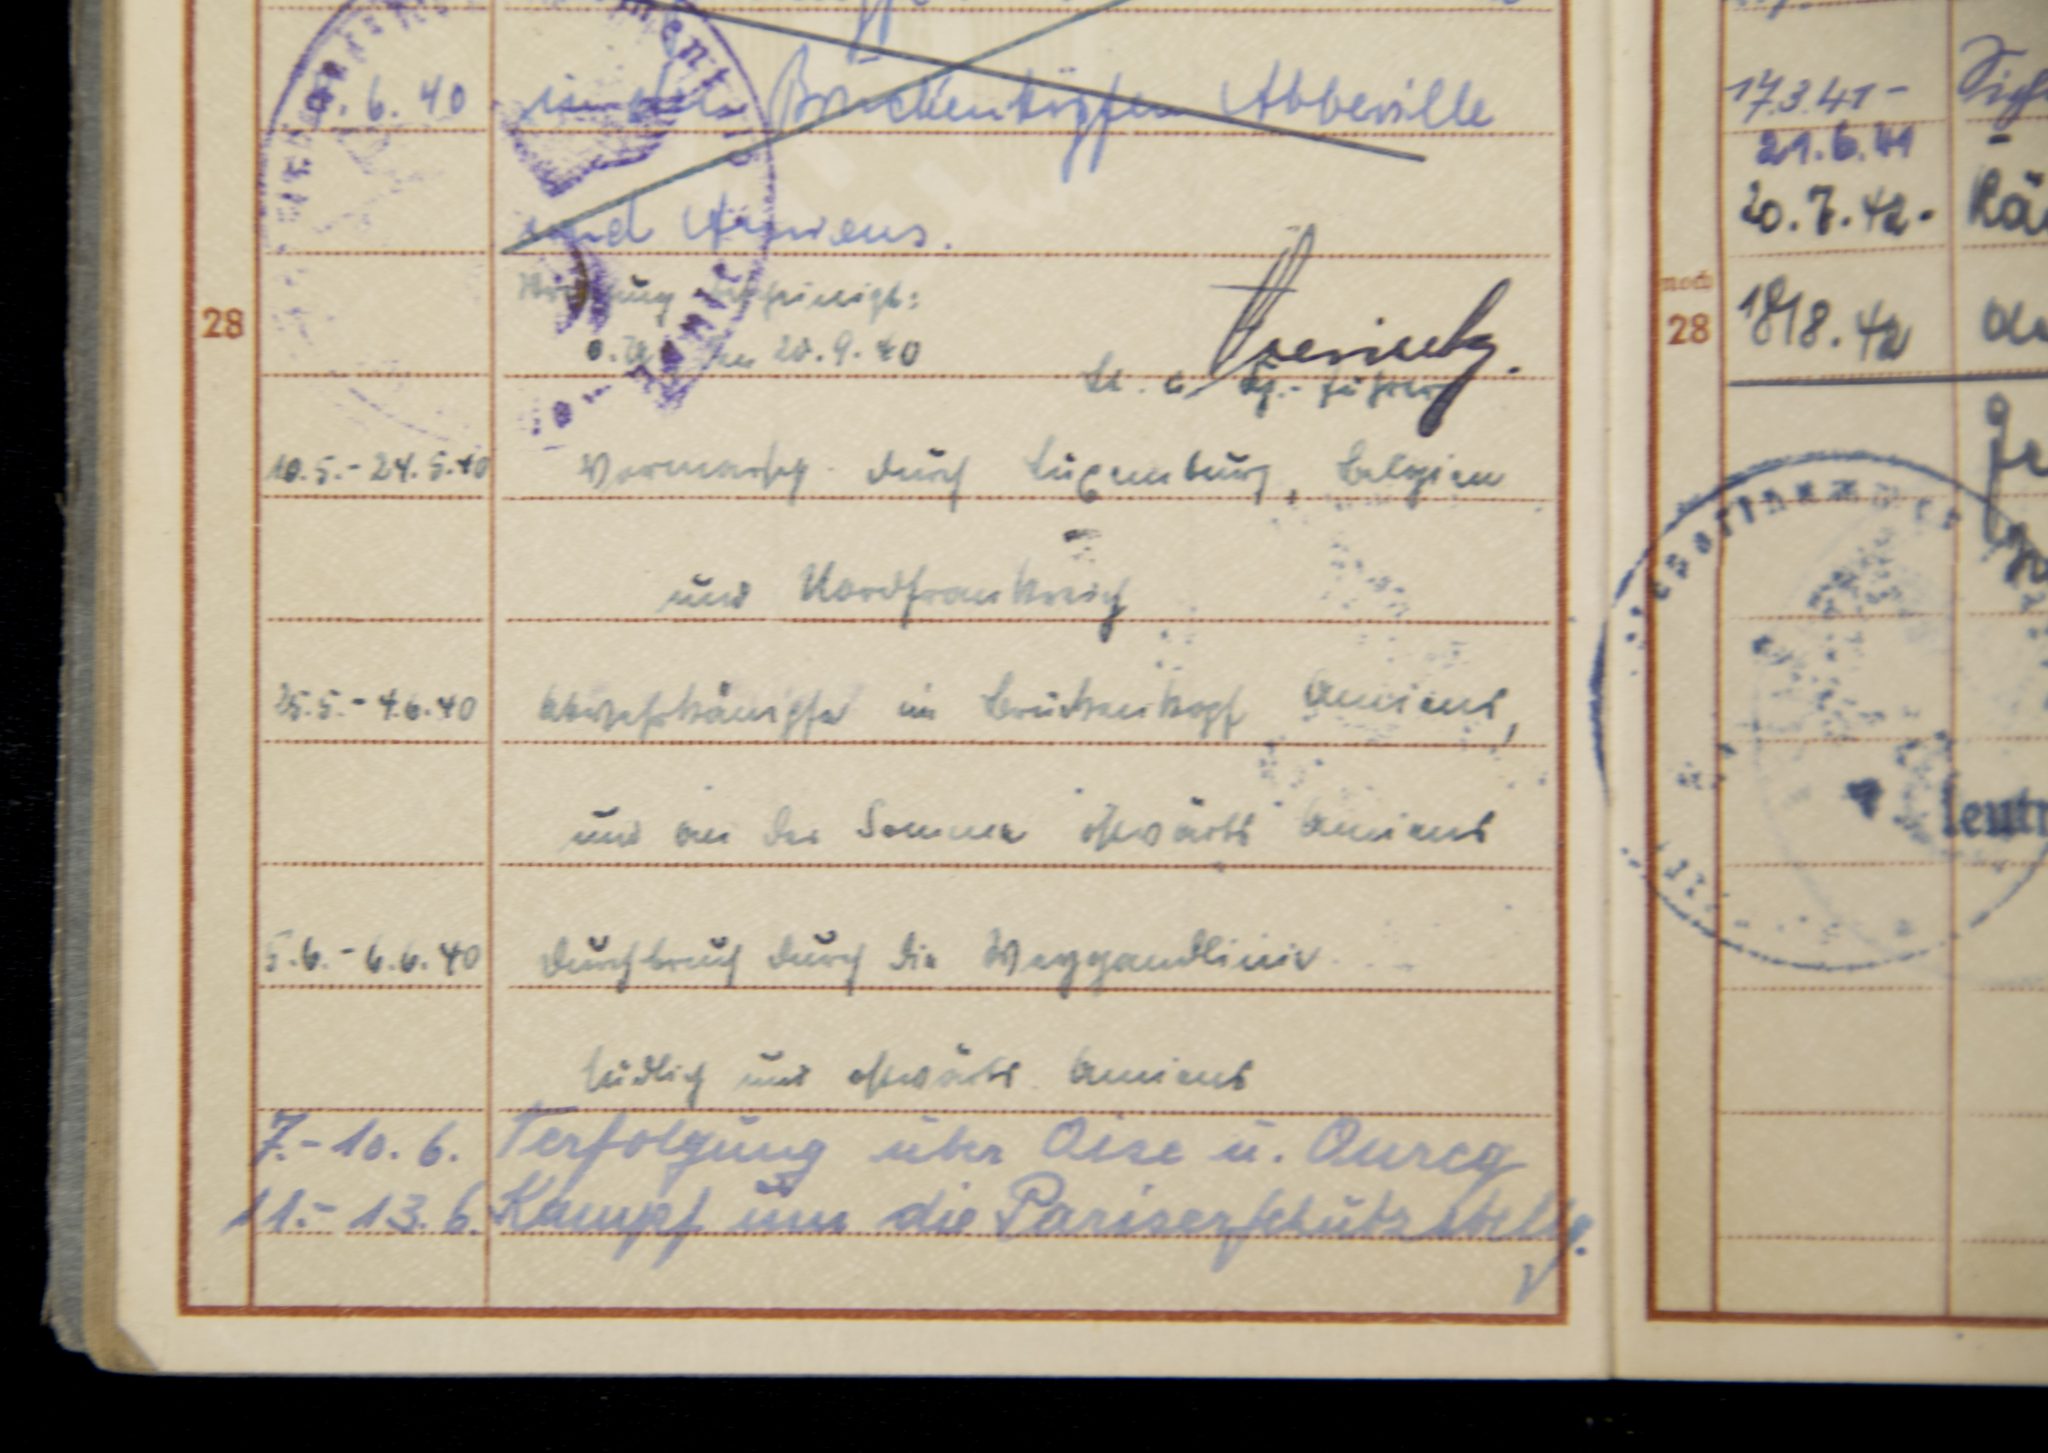 6. 40 in den Brückenköpfen Abbeville
und Amiens.
28
20.9.40
Lt. u. Kp.-Führer
10.5.- 24.5.40 Vormarsch durch Luxemburg, Belgien
und Nordfrankreich
25.5.- 4.6.40 Abwehrkämpfe im Brückenkopf Amiens,
und an der Somme ostwärts Amiens
5.6.- 6.6.40 Durchbruch durch die Weygandlinie
südlich und ostwärts Amiens
7.- 10. 6. Verfolgung über Oise u. Ourcq
11.- 13. 6. Kampf um die Pariserschutzstellg.
17.3.41-
21.6.41
20.7.42-
noch
28
18/8.42